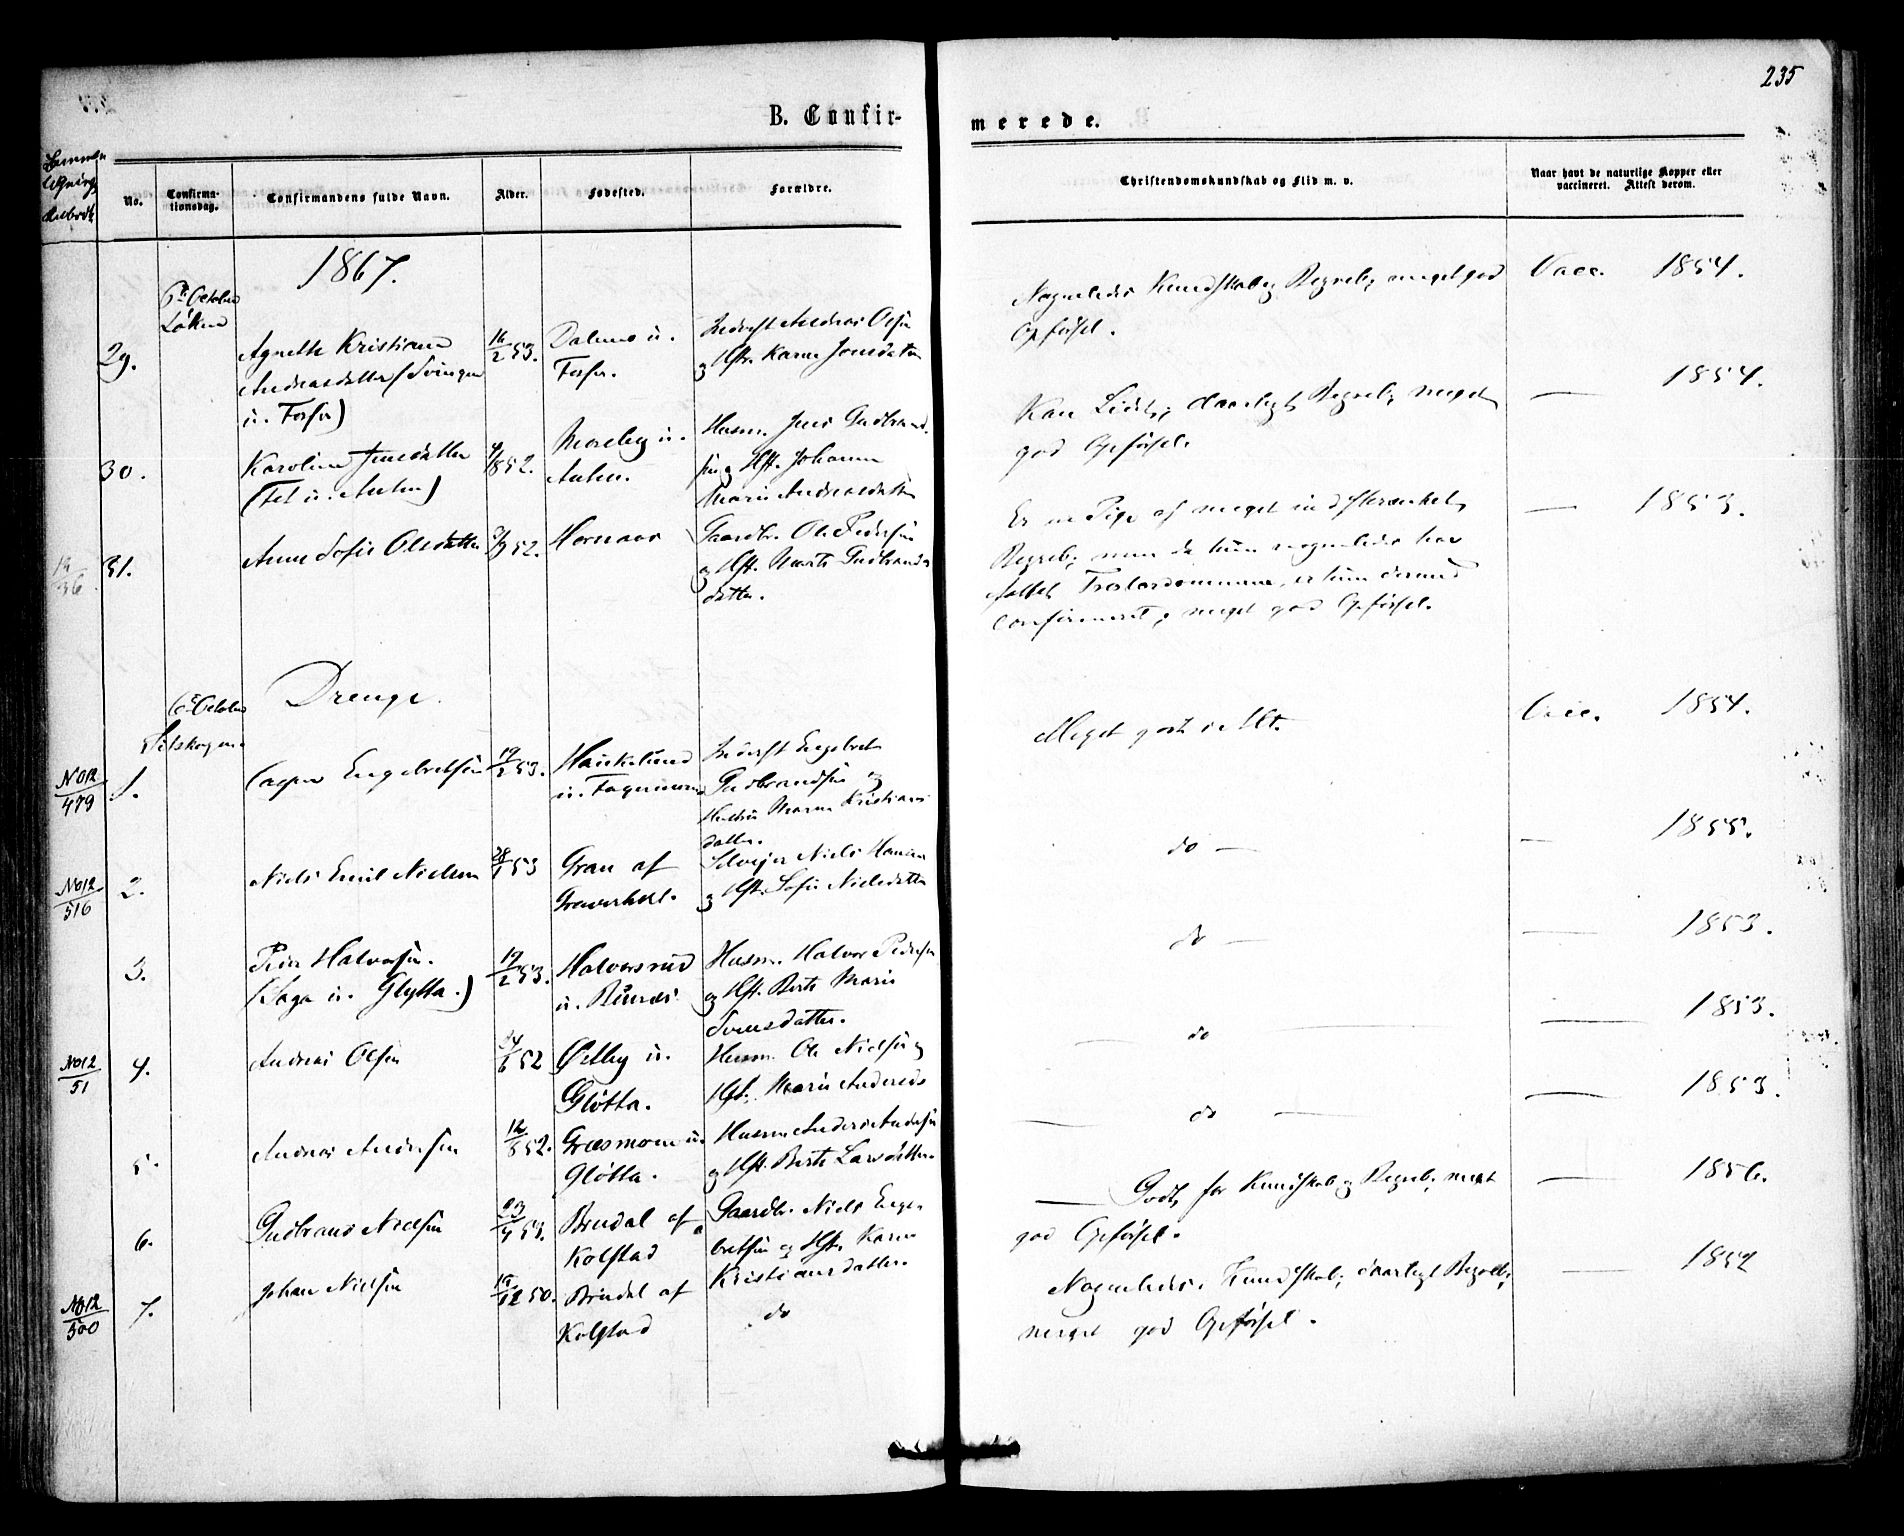 235
B. Confir-
merede.
No.
Confirma-
tionsdag.
Confirmandens fulde Navn.
Alder.
Fødested.
Forældre.
Christendomskundskab og Flid m. v.
Naar havt de naturlige Kopper eller
vaccineret. Attest derom.
1867.
October
Løken
29.
Agnethe Kristiane
Andreasdatter (Svingen
u. Fosser)
16/2 53.
u.
Fosser.
Andreas Olsen
og Hst. Karen Jensdatter
Nogenledes Kundskab og Begreb; meget god
Opførsel.
Vacc. 1854.
30.
Karoline Jensdatter
52.
Moseby u.
Husm. Jens Gudbrand-
sen og Hst. Johanne
Marie Andreasdatter
Kan Lidt; daarligt Begreb; meget
god Opførsel.
— 1854.
31.
Anne Sofie Olsdatter
52.
Hornaas
Gaardbr. Ole Pedersen
og Hst. Marte Gudbrands
datter.
Er en Pige af meget indskrænket
Begreb; men da hun nogenledes har
fattet Troslærdommene, er hun dermed
confirmeret; meget god Opførsel.
— 1853.
Drenge.
October
Setskogen
No 12/479
1.
Casper Engebretsen
19/2 53.
Haukelund
u. Fagermoen
Engebret
Gudbrandsen og
Hustru Maren Kristians
datter.
Meget godt i Alt.
Vacc. 1854.
No 12/516
2.
Niels Emil Nielsen
28/1 53
Gran af
Selveier Niels Hansen
og Hst. Sofie Nielsdatter
do —
— 1855.
3.
Peder Halvorsen.
(Haga u. Glytta.)
19/2 53.
Halvorsrud
u. Bunæs
Husm. Halvor Pedersen
og Hst. Berte Marie
Svensdatter.
do —
— 1853.
No 12/51
4.
Andreas Olsen
24/6 52
Østby u.
Gløtta.
Husm. Ole Nielsen og
Hst. Marie Andersd
— do —
— 1853.
5.
Andreas Andersen
12/8 52.
Græsmoen u.
Gløtta.
Husm. Anders Andersen
og Hst. Berte Larsdatter.
— do —
— 1853.
6.
Gudbrand Nielsen
23/4 53.
Bredal af
Kolstad
Gaardbr. Niels Enge-
bretsen og Hst. Karen
Kristiansdatter.
— Godt for Kundskab og Begreb; meget
god Opførsel.
— 1856.
No 12/500
7.
Johan Nielsen
19/12 50.
Bredal af
Kolstad
do
Nogenledes Kundskab; daarligt Begreb;
meget god Opførsel.
— 1852